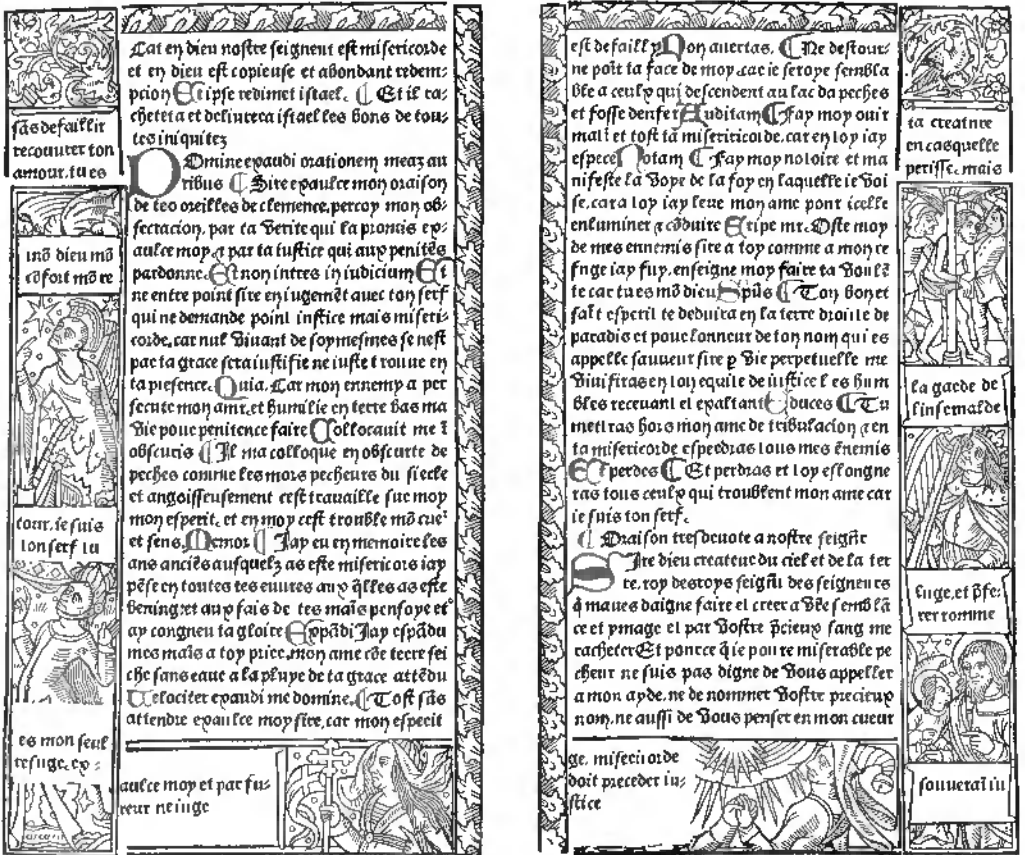 Car en dieu nostre seigneur est misericorde
et en dieu est copieuse et abondant redem-
pcion Et ipse redimet israel. ¶ Et il ra-
chetera et delivrera israel les bons de tou-
tes iniquitez
Domine exaudi orationem meaz au
ribus ¶ Sire exaulce mon oraison
de tes oreilles de clemence, percoy mon ob-
secracion, par ta verite qui la promis ex-
aulce moy, et par ta iustice qui aux penitēs
pardonne. Et non intres in iudicium Et
ne entre point sire en iugemēt avec ton serf
qui ne demande point iustice mais miseri-
corde, car nul vivant de soy mesmes se nest
par ta grace sera iustifie ne iuste trouue en
ta presence. Quia. Car mon ennemy a per
secute mon ame, et humilie en terre bas ma
vie pour penitence faire Collocauit me ī
obscuris ¶ Il ma colloque en obscurte de
peches comme les mors pecheurs du siecle
et angoisseusement cest travaille sur moy
mon esperit, et en moy cest trouble mō cue
et sens Memor ¶ Jay eu en memoire les
ans anciēs ausquelz as este misericors iay
pēse en toutes tes euures aux q̄lles as este
bening, et aux fais de tes mais pensoye et
ay congneu ta gloire Expādi Jay espādu
mes mais a toy price, mon ame cōe terre sei
che sans eaue a la pluye de ta grace attēdu
Velociter exaudi me domine. ¶ Tost sās
attendre exaulce moy sire, car mon esperit
sās defaillir
recouurer ton
amour, tu es
mō dieu mō
cōfort mō re
tour, ie suis
ton serf tu
es mon seul
refuge, ex-
aulce moy et par fu-
reur ne iuge
est defailly Non avertas. ¶ Ne destour-
ne poīt ta face de moy, car ie seroye sembla
ble a ceulx qui descendent au lac da peches
et fosse denfer Auditam ¶ Fay moy ouir
mati et tost ta misericorde, car en toy iay
espere Notam ¶ Fay moy notoire et ma
nifeste la voye de la foy en laquelle ie voi
se, car a toy iay leue mon ame pour icelle
enluminer et cōduire Eripe me. Oste moy
de mes ennemis sire a toy comme a mon re
fuge iay fuy, enseigne moy faire ta voulē
te car tu es mō dieu Spūs ¶ Ton bon et
saīt esperit te deduira en la terre droitte de
paradis et pour lonneur de ton nom qui es
appelle sauueur sire p vie perpetuelle me
vivifiras en ton equite de iustice les hum
bles recevant et exaltant Educes ¶ Tu
mettras hors mon ame de tribulacion et en
ta misericorde esperdras tous mes ēnemis
Et perdes ¶ Et perdras et toy eslongne
ras tous ceulx qui troublent mon ame car
ie suis ton serf.
¶ Oraison tresdevote a nostre seigñr
Sire dieu createur du ciel et de la ter
re, roy des roys seigñr des seigneurs
q̄ maues daigne faire et creer a vr̄e semblā
ce et ymage et par vostre p̄cieux sang me
racheter Et pource q̄ ie poure miserable pe
cheur ne suis pas digne de vous appeller
a mon ayde, ne de nommer vostre precieux
nom, ne aussi de vous penser en mon cueur
ta creature
en casquelle
perisse, mais
la garde de
linfernalde
luge, et p̄fe-
rer comme
souveraī iu
ge, misericorde
doit preceder iu-
stice